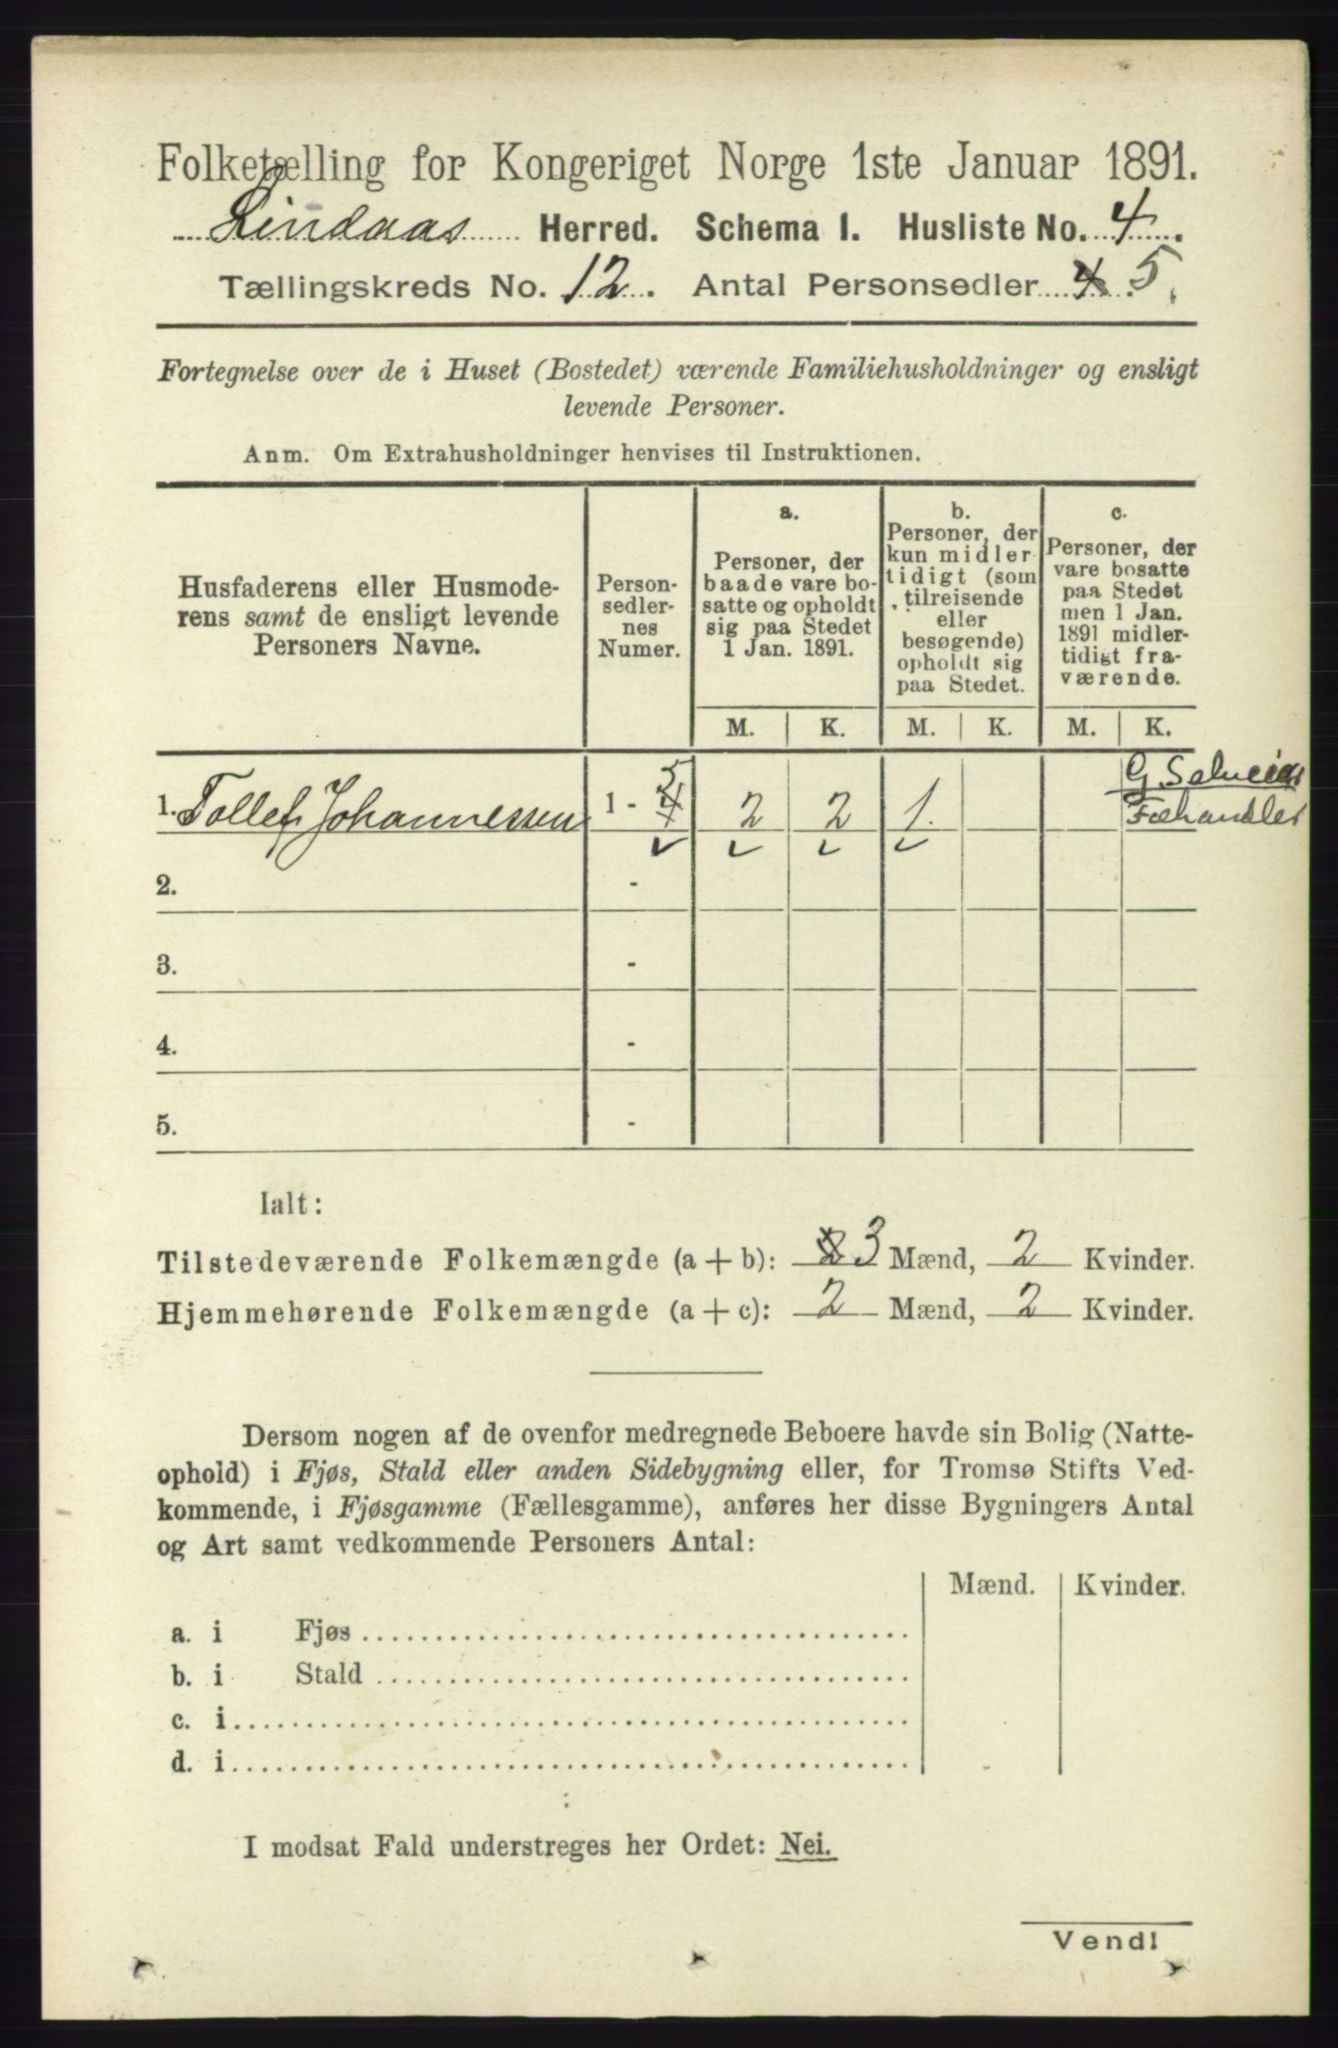 Folketælling for Kongeriget Norge 1ste Januar 1891.
Lindaas Herred. Schema 1. Husliste No. 4.
Tællingskreds No. 12. Antal Personsedler 4 5.
Fortegnelse over de i Huset (Bostedet) værende Familiehusholdninger og ensligt
levende Personer.
Anm. Om Extrahusholdninger henvises til Instruktionen.
Husfaderens eller Husmode-
rens samt de ensligt levende
Personers Navne.
Person-
sedler-
nes
Numer.
a.
Personer, der
baade vare bo-
satte og opholdt
sig paa Stedet
1 Jan. 1891.
b.
Personer, der
kun midler-
tidigt (som
tilreisende
eller
besøgende)
opholdt sig
paa Stedet.
c.
Personer, der
vare bosatte
paa Stedet
men 1 Jan.
1891 midler-
tidigt fra-
værende.
M. K. M. K. M. K.
G.
Fæhandler
1. Tollef Johannessen 1 - 4 5 2 2 1.
2. -
3. -
4. -
5. -
Ialt:
Tilstedeværende Folkemængde (a + b): 2 3 Mænd, 2 Kvinder.
Hjemmehørende Folkemængde (a + c): 2 Mænd, 2 Kvinder.
Dersom nogen af de ovenfor medregnede Beboere havde sin Bolig (Natte-
ophold) i Fjøs, Stald eller anden Sidebygning eller, for Tromsø Stifts Ved-
kommende, i Fjøsgamme (Fællesgamme), anføres her disse Bygningers Antal
og Art samt vedkommende Personers Antal:
Mænd. Kvinder.
a. i Fjøs
b. i Stald
c. i
d. i
I modsat Fald understreges her Ordet: Nei.
Vend!